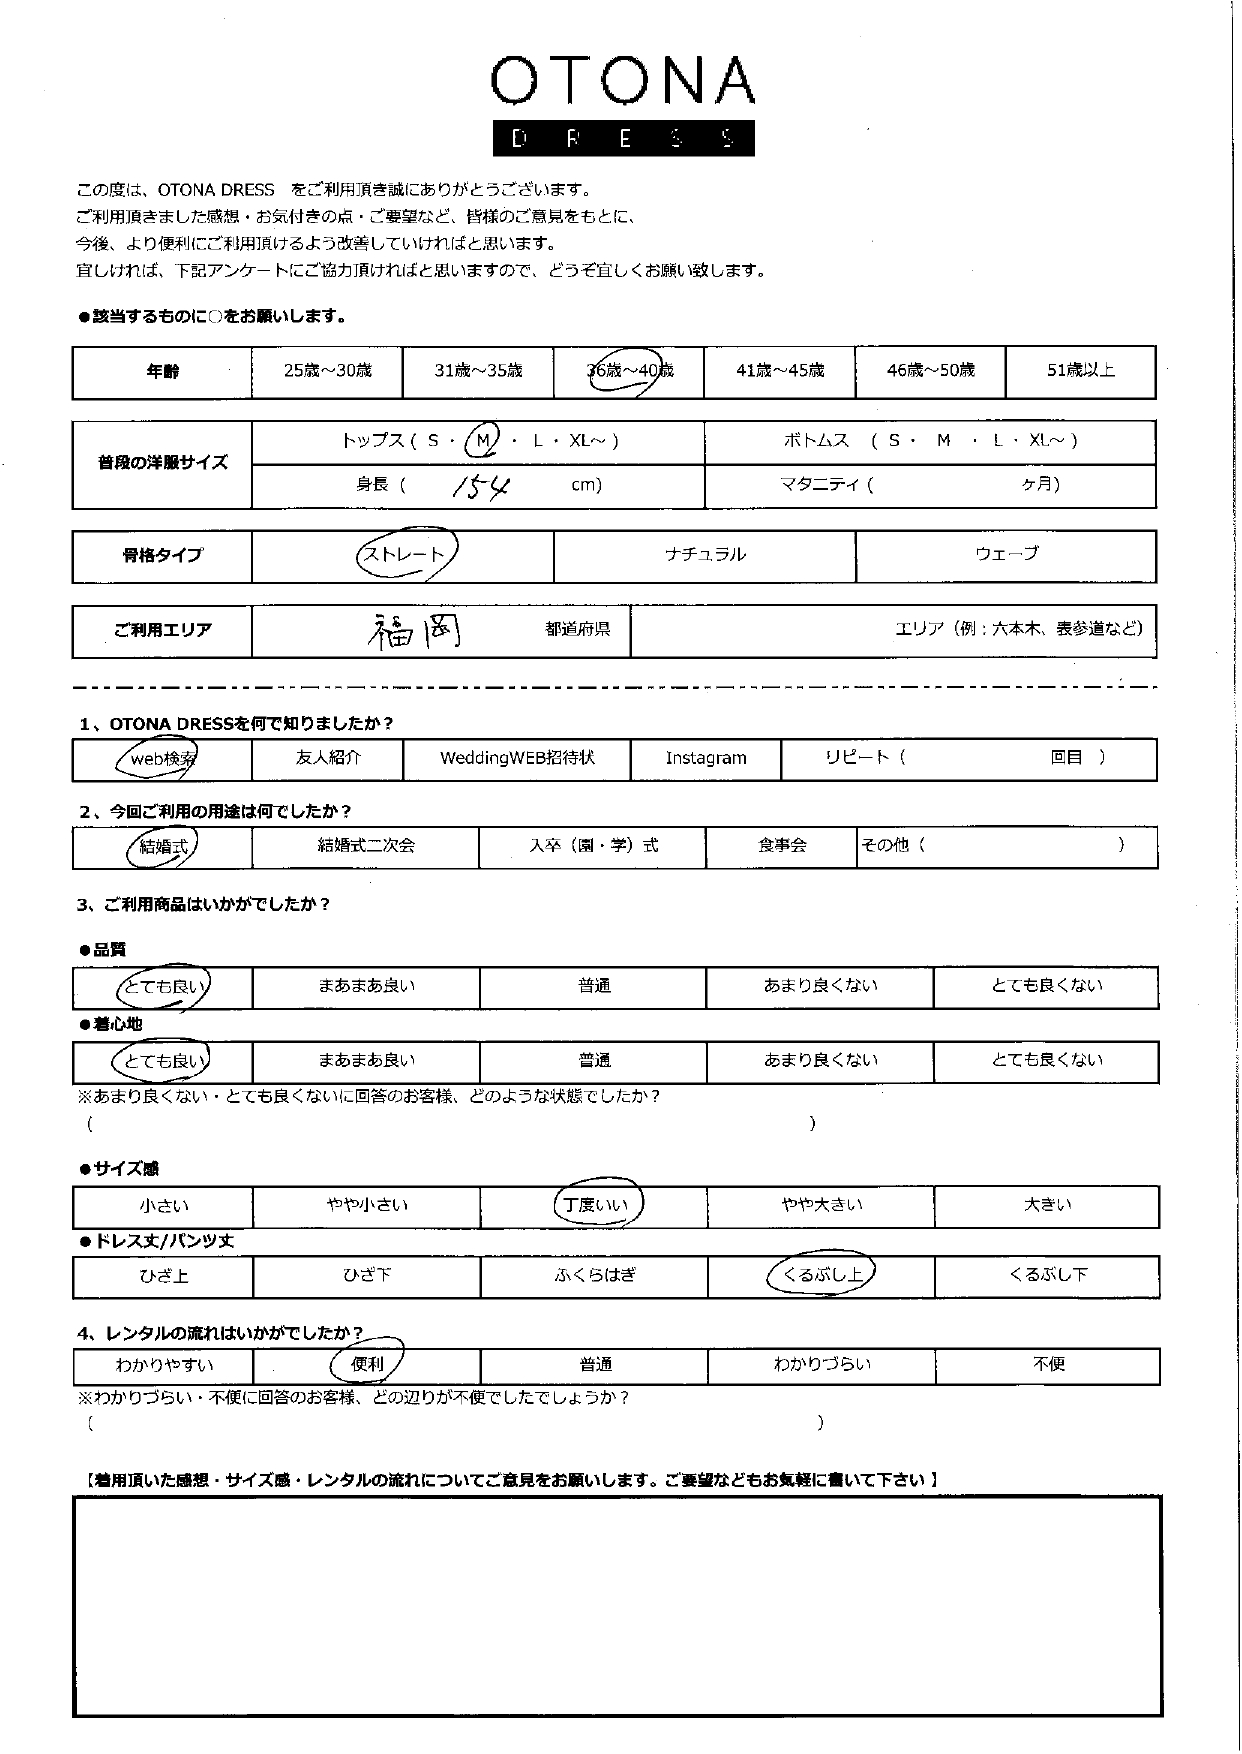 OTONA
DRESS
この度は、OTONA DRESS　をご利用頂き誠にありがとうございます。
ご利用頂きました感想・お気付きの点・ご要望など、皆様のご意見をもとに、
今後、より便利にご利用頂けるよう改善していければと思います。
宜しければ、下記アンケートにご協力頂ければと思いますので、どうぞ宜しくお願い致します。
●該当するものに○をお願いします。
年齢 25歳～30歳 31歳～35歳 36歳～40歳 41歳～45歳 46歳～50歳 51歳以上
普段の洋服サイズ トップス ( S ・ M ・ L ・ XL～ ) ボトムス ( S ・ M ・ L ・ XL～ )
身長 ( 154 cm) マタニティ ( ケ月)
骨格タイプ ストレート ナチュラル ウェーブ
ご利用エリア 福岡 都道府県 エリア（例：六本木、表参道など）
1、OTONA DRESSを何で知りましたか？
web検索 友人紹介 WeddingWEB招待状 Instagram リピート（ 回目 ）
2、今回ご利用の用途は何でしたか？
結婚式 結婚式二次会 入卒（園・学）式 食事会 その他（ ）
3、ご利用商品はいかがでしたか？
●品質
とても良い まあまあ良い 普通 あまり良くない とても良くない
●着心地
とても良い まあまあ良い 普通 あまり良くない とても良くない
※あまり良くない・とても良くないに回答のお客様、どのような状態でしたか？
（ ）
●サイズ感
小さい やや小さい 丁度いい やや大きい 大きい
●ドレス丈/パンツ丈
ひざ上 ひざ下 ふくらはぎ くるぶし上 くるぶし下
4、レンタルの流れはいかがでしたか？
わかりやすい 便利 普通 わかりづらい 不便
※わかりづらい・不便に回答のお客様、どの辺りが不便でしたでしょうか？
（ ）
【着用頂いた感想・サイズ感・レンタルの流れについてご意見をお願いします。ご要望などもお気軽に書いて下さい 】